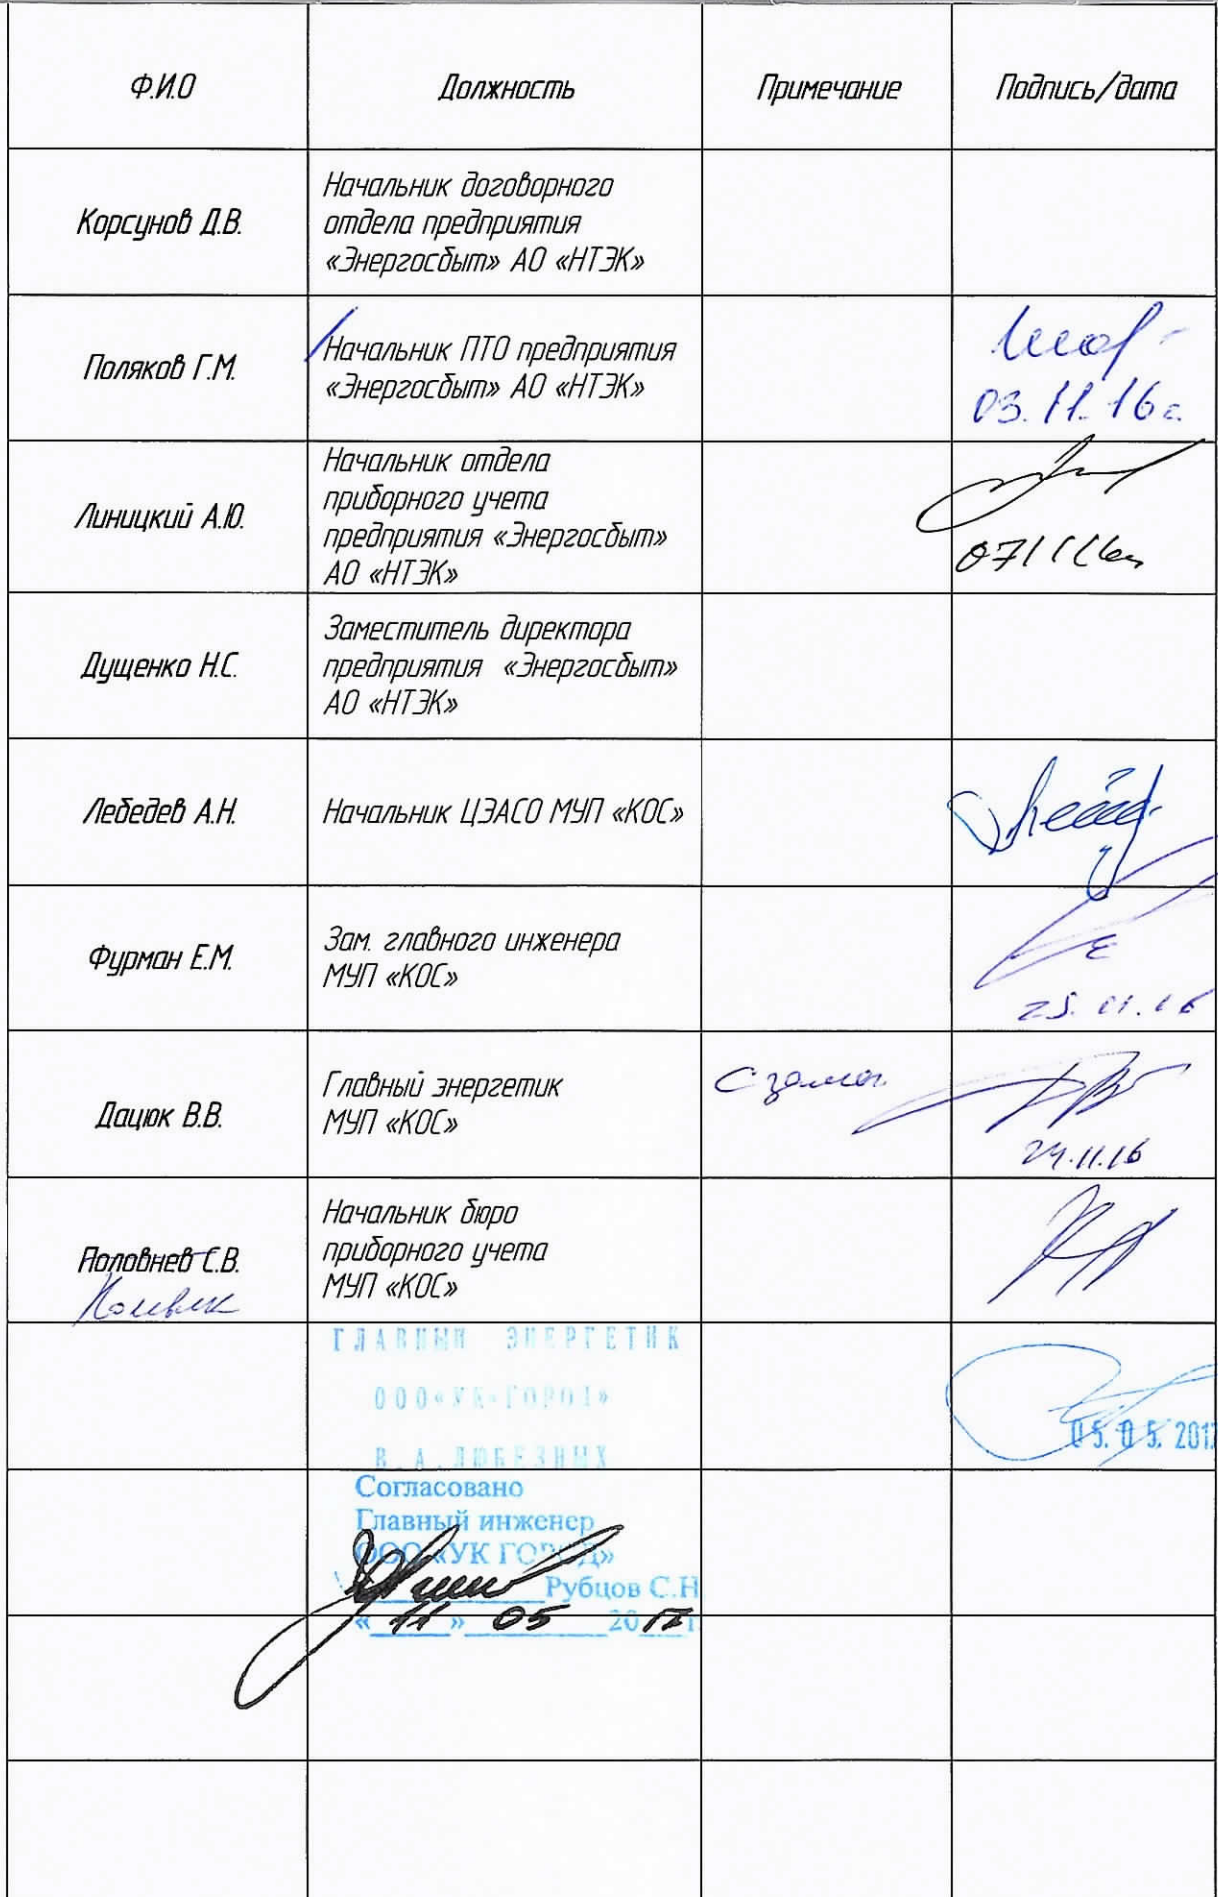 Ф.И.О Должность Примечание Подпись/дата
Корсунов Д.В.
Начальник договорного
отдела предприятия
«Энергосбыт» АО «НТЭК»
Поляков Г.М.
Начальник ПТО предприятия
«Энергосбыт» АО «НТЭК»
03.11.16г.
Линицкий А.Ю.
Начальник отдела
приборного учета
предприятия «Энергосбыт»
АО «НТЭК»
Дущенко Н.С.
Заместитель директора
предприятия «Энергосбыт»
АО «НТЭК»
Лебедев А.Н.
Начальник ЦЭАСО МУП «КОС»
Фурман Е.М.
Зам. главного инженера
МУП «КОС»
25.11.16
Дацюк В.В.
Главный энергетик
МУП «КОС»
С замеч.
24.11.16
Половнев С.В.
Начальник бюро
приборного учета
МУП «КОС»
ГЛАВНЫЙ ЭНЕРГЕТИК
ООО«УК«ГОРОД»
В.А.ЛЮБЕЗНЫХ
05.05.2017
Согласовано
Главный инженер
ООО «УК ГОРОД»
Рубцов С.Н
«11» 05 2017 г.